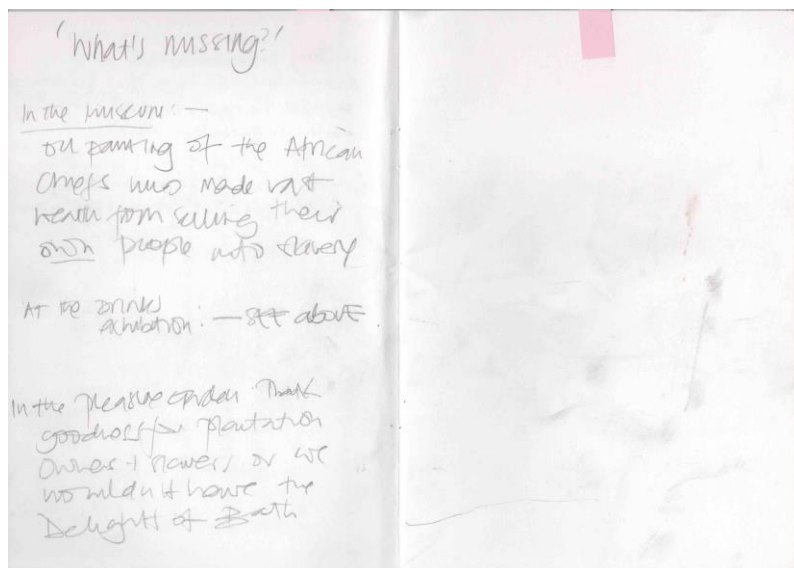 'What's missing?'
In the museum: —
oil painting of the African
Chiefs who made vast
wealth from selling their
own people into slavery
At the drinks
exhibition: — see above
In the pleasure garden Thank
goodness for plantation
owners + slavers or we
wouldn't have the
Delights of Bath